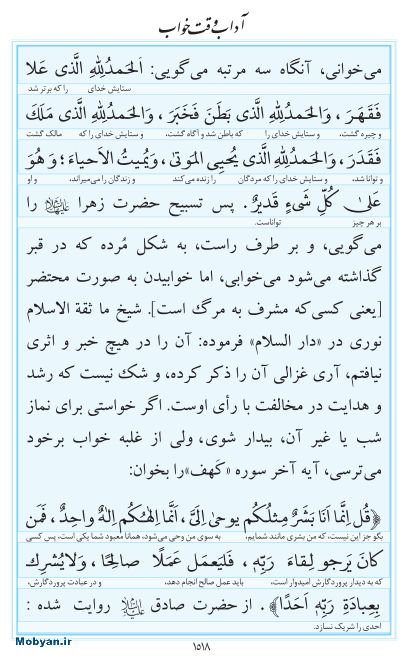 آداب وقت خواب
می‌خوانی، آنگاه سه مرتبه می‌گویی: اَلحَمدُلِلّهِ الَّذی عَلا
ستایش خدای را که برتر شد
فَقَهَرَ، وَالحَمدُلِلّهِ الَّذی بَطَنَ فَخَبَرَ، وَالحَمدُلِلّهِ الَّذی مَلَکَ
و چیره گشت، و ستایش خدای را که باطن شد و آگاه گشت، و ستایش خدای را که مالک گشت
فَقَدَرَ، وَالحَمدُلِلّهِ الَّذی یُحیِی المَوتیٰ، وَیُمیتُ الاَحیاءَ؛ وَ هُوَ
و توانا شد، و ستایش خدای را که مردگان را زنده می‌کند و زندگان را می‌میراند، و او
عَلیٰ کُلِّ شَیءٍ قَدیرٌ. پس تسبیح حضرت زهرا علیهاالسلام را
بر هر چیز تواناست.
می‌گویی، و بر طرف راست، به شکل مُرده که در قبر
گذاشته می‌شود می‌خوابی، اما خوابیدن به صورت محتضر
[یعنی کسی‌که مشرف به مرگ است]. شیخ ما ثقة الاسلام
نوری در «دار السلام» فرموده: آن را در هیچ خبر و اثری
نیافتم، آری غزالی آن را ذکر کرده، و شک نیست که رشد
و هدایت در مخالفت با رأی اوست. اگر خواستی برای نماز
شب یا غیر آن، بیدار شوی، ولی از غلبه خواب برخود
می‌ترسی، آیه آخر سوره «کَهف»را بخوان:
﴿قُل اِنَّما اَنَا بَشَرٌ مِثلُکُم یوحیٰ اِلَیَّ، اَنَّما اِلٰهُکُم اِلٰهٌ واحِدٌ، فَمَن
بگو جز این نیست، که من بشری مانند شمایم، به سوی من وحی می‌شود، همانا معبود شما یکی است، پس کسی
کانَ یَرجو لِقاءَ رَبِّهِ، فَلیَعمَل عَمَلًا صالِحًا، وَلایُشرِک
که به دیدار پروردگارش امیدوار است، باید عمل صالح انجام دهد، و در عبادت پروردگارش،
بِعِبادَةِ رَبِّهِ اَحَدًا﴾. از حضرت صادق علیه‌السلام روایت شده :
احدی را شریک نسازد.
۱۵۱۸
Mobyan.ir